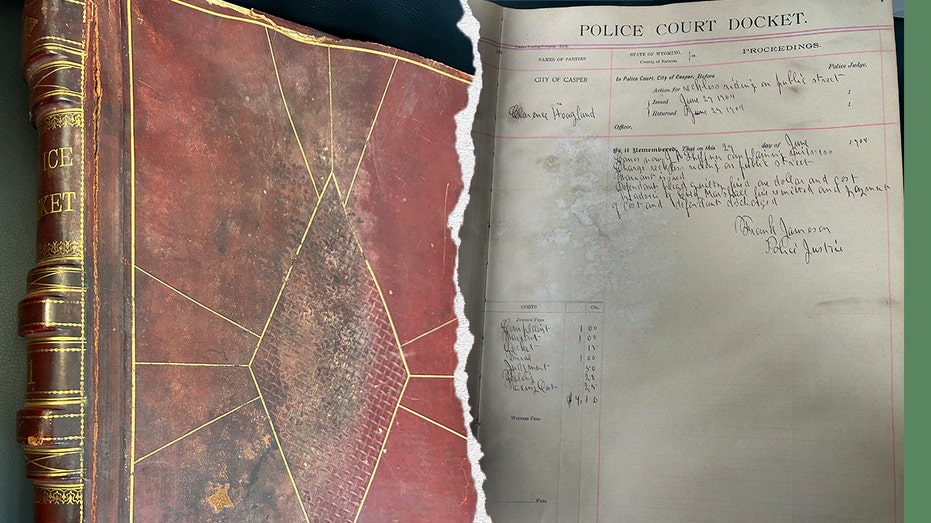 ICE
KET
1
POLICE COURT DOCKET.
NAMES OF PARTIES
STATE OF WYOMING,
County of Natrona
PROCEEDINGS.
CITY OF CASPER
In Police Court, City of Casper, Before
Police Judge
Action for reckless riding on public street
Clarence Hoaglund
Issued June 29 1904
Returned June 29 1904
Officer,
Be it Remembered, That on this 29 day of June 1904
Comes now complaining
Charge reckless riding on public street
Warrant issued
Defendant plead guilty fined one dollar and cost
fine remitted and payment
of cost and defendant discharged
Frank Jameson
Police Justice
COSTS Cts.
Justice Fees
Complaint 1 00
1 00
Docket 15
1 00
Judgment 50
25
25
$4.10
Witness Fees
Fees